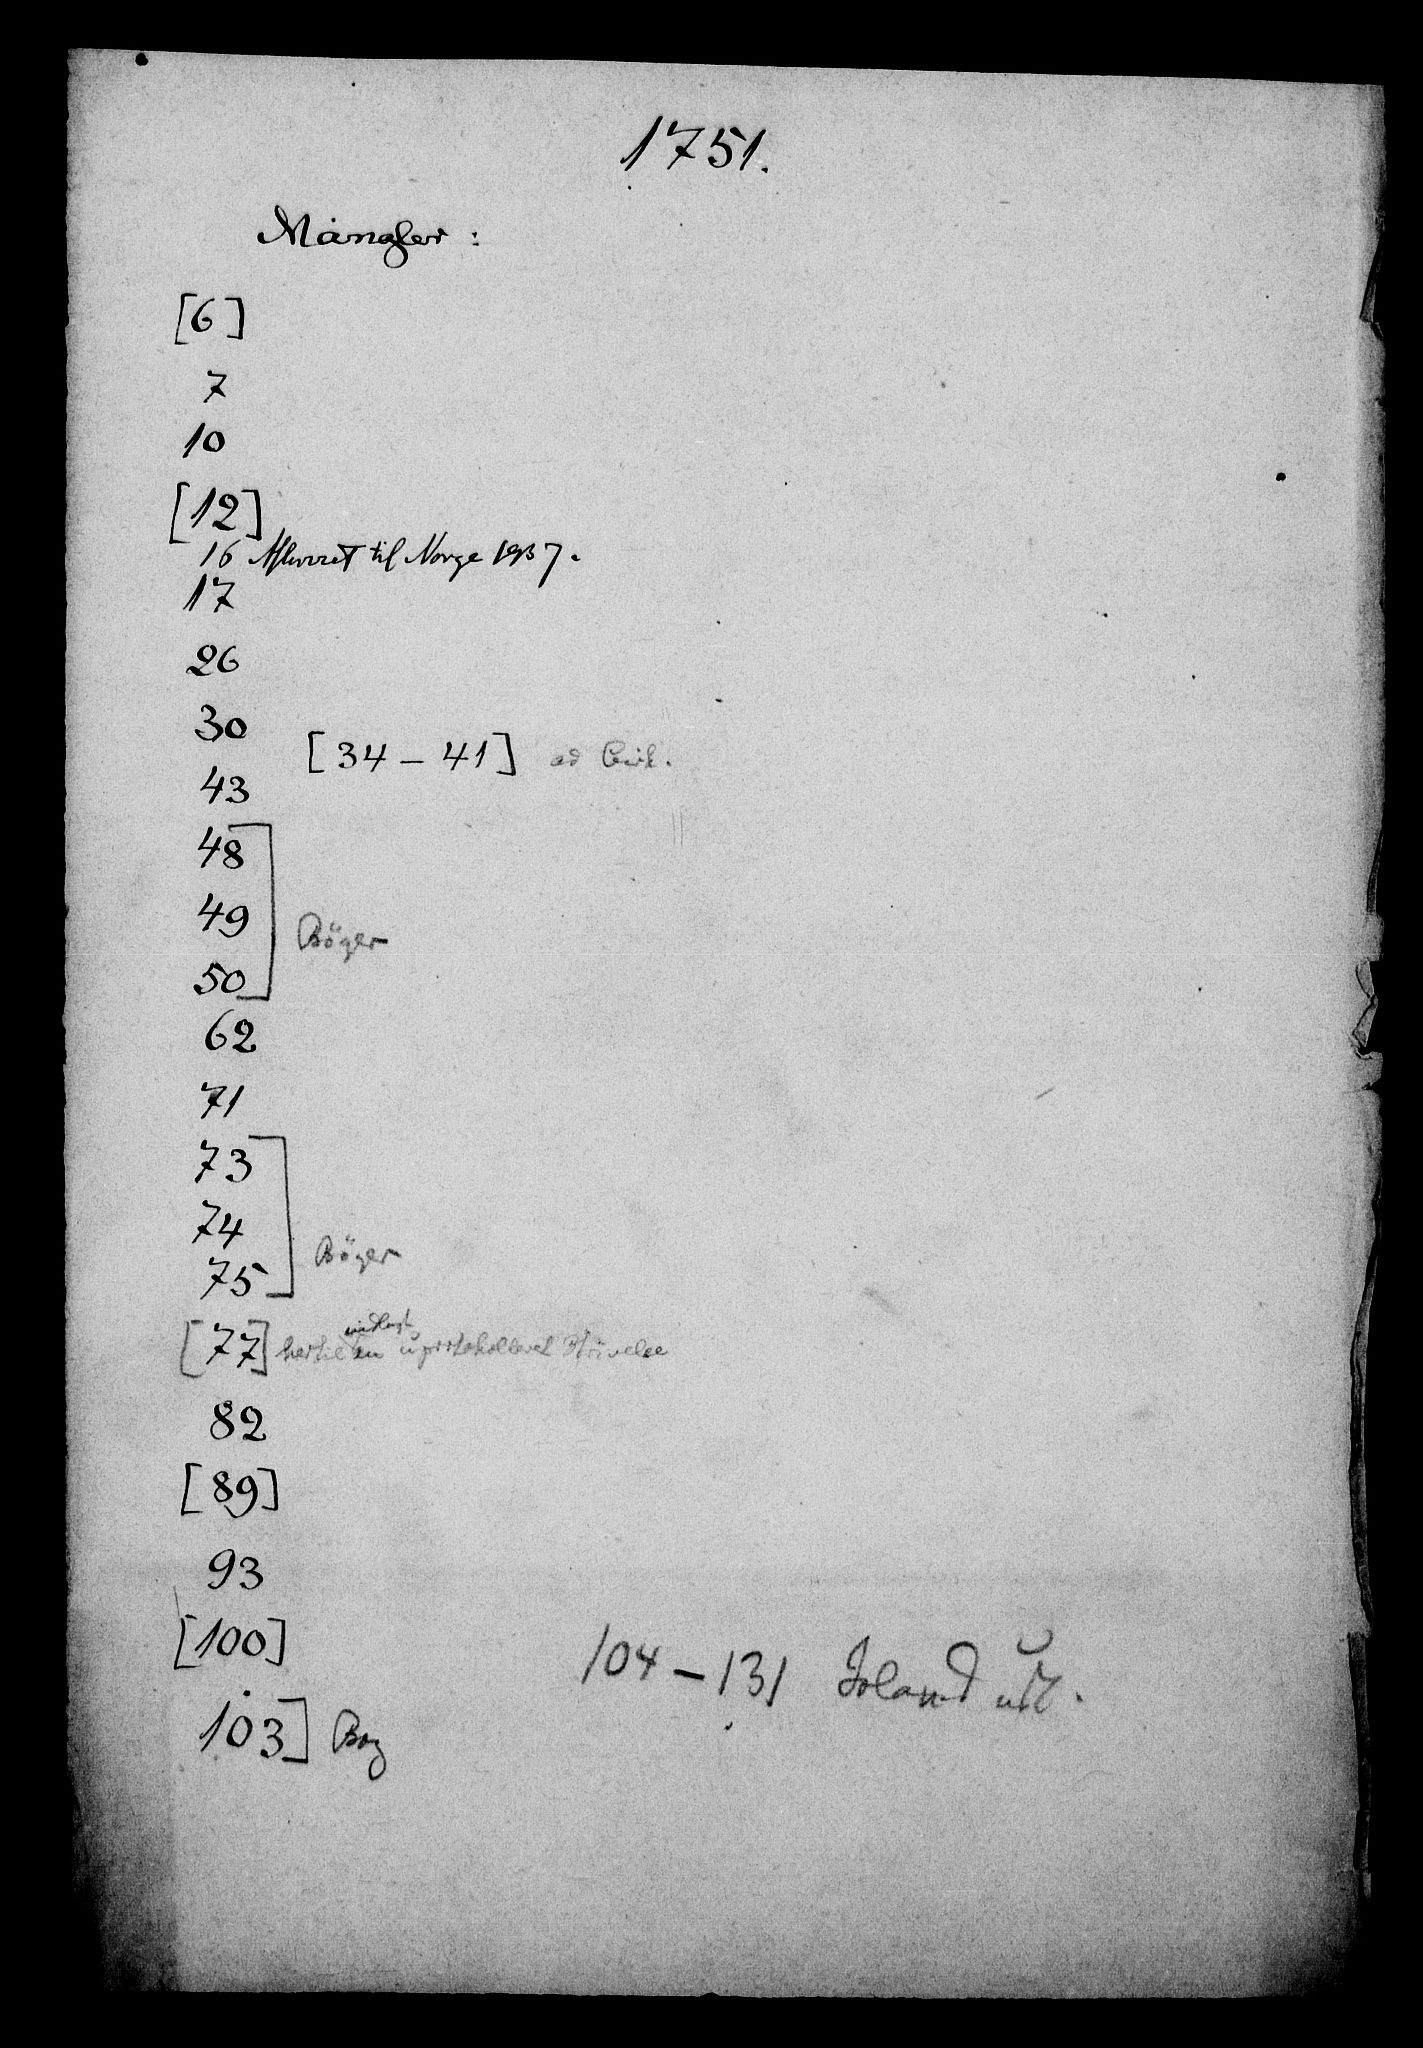 1751.
Mangler :
[6]
7
10
[12]
16 Afleveret til Norge 1937.
17
26
30
[34 – 41] ad
43
48
49
50
Böger
62
71
73
74
75
Böger
[77] hertil en uprotokolleret
82
[89]
93
[100]
104 – 131 Island
103] Bog